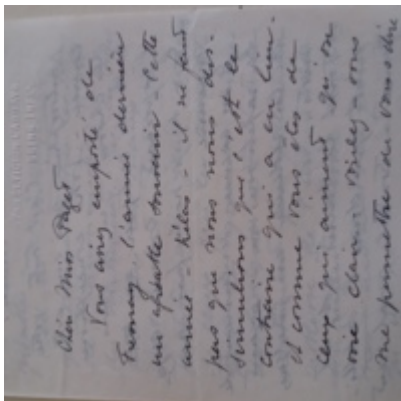 Chère Miss Paget
Vous avez emporté de
Fresnay l'année dernière
un affreuse souvenir - Cette
année - hélas - il ne faut
pas que nous nous dis-
simulions que c'est le
contraire qui a eu lieu -
et comme vous êtes de
ceux qui aiment qu'on
voie clair. Voulez-vous
me permettre de vous dire